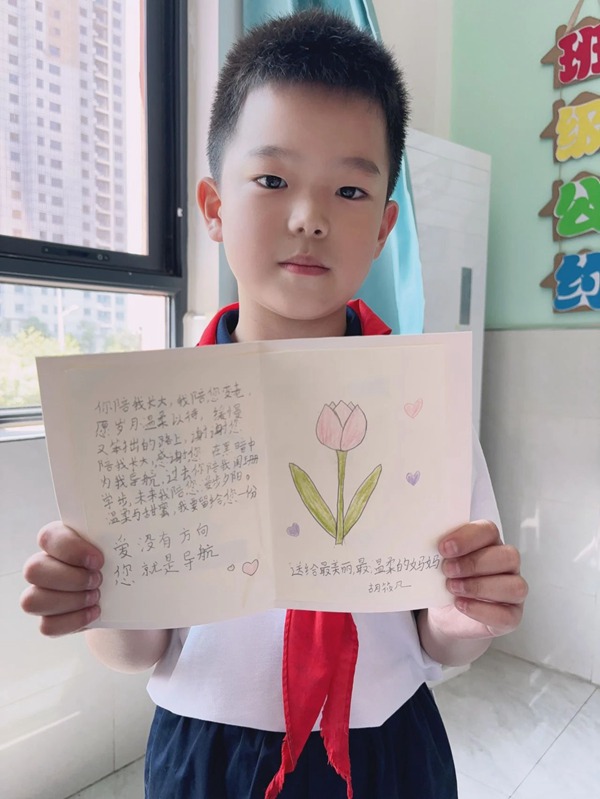 你陪我长大,我陪您变老,
愿岁月温柔以待,缓慢
又笨拙的路上,谢谢您
陪我长大,感谢您 在黑暗中
为我导航,过去你陪我
学步,未来我陪您 夕阳。
温柔与甜蜜,我要留给您一份
爱 没有方向
您 就是导航
送给最美丽,最,温柔的妈妈
班
级
公
约